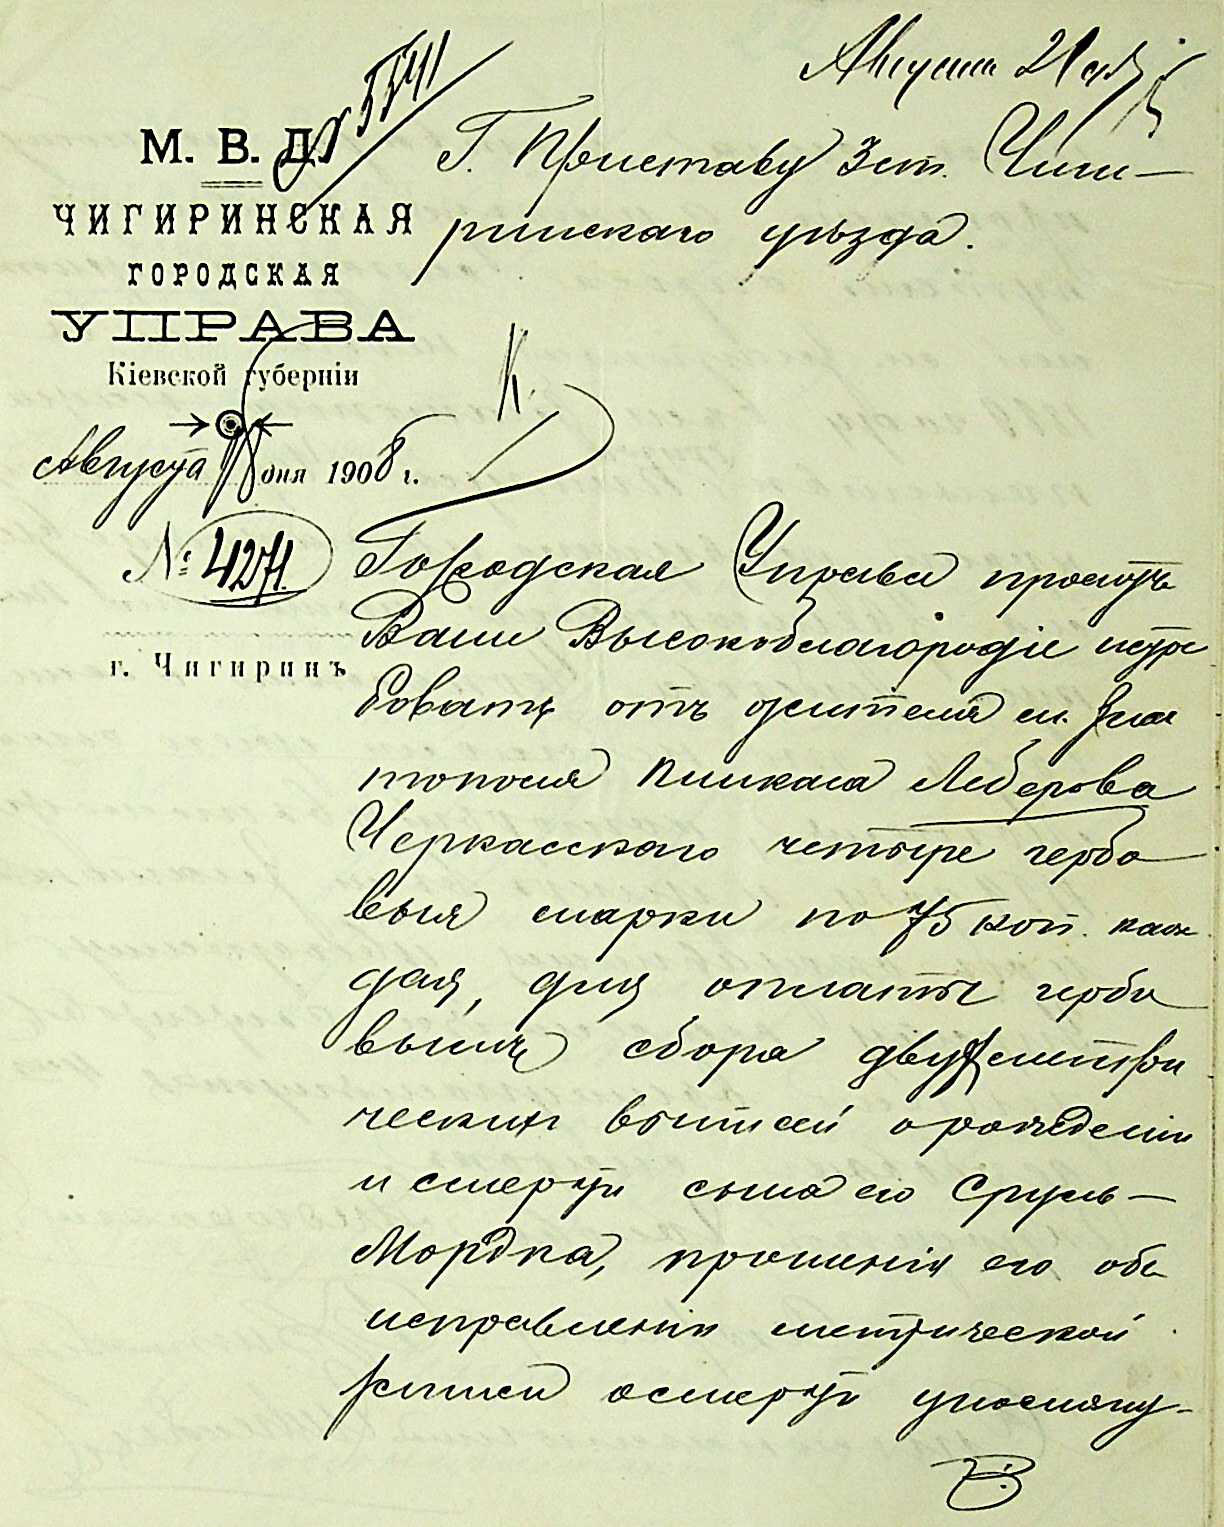 Августа 21 дня
5541
М. В. Д.
ЧИГИРИНСКАЯ
ГОРОДСКАЯ
УПРАВА
Кіевской губерніи
Августа 18 дня 1908 г.
№ 4271.
г. Чигиринъ
Г. Приставу 3 ст. Чиги-
ринскаго уѣзда.
К.
Городская Управа проситъ
Ваше Высокоблагородіе истре
бовать отъ жителя м. Зла
тополя Пинкаса Лейберова
Черкасскаго четыре гербо
выя марки по 75 коп. каж
дая, для оплаты гербо
вымъ сбора двухъ метри
ческихъ выписей о рожденіи
и смерти сына его Сруль-
Мордка, прошенія его объ
исправленіи метрической
записи о смерти упомяну-